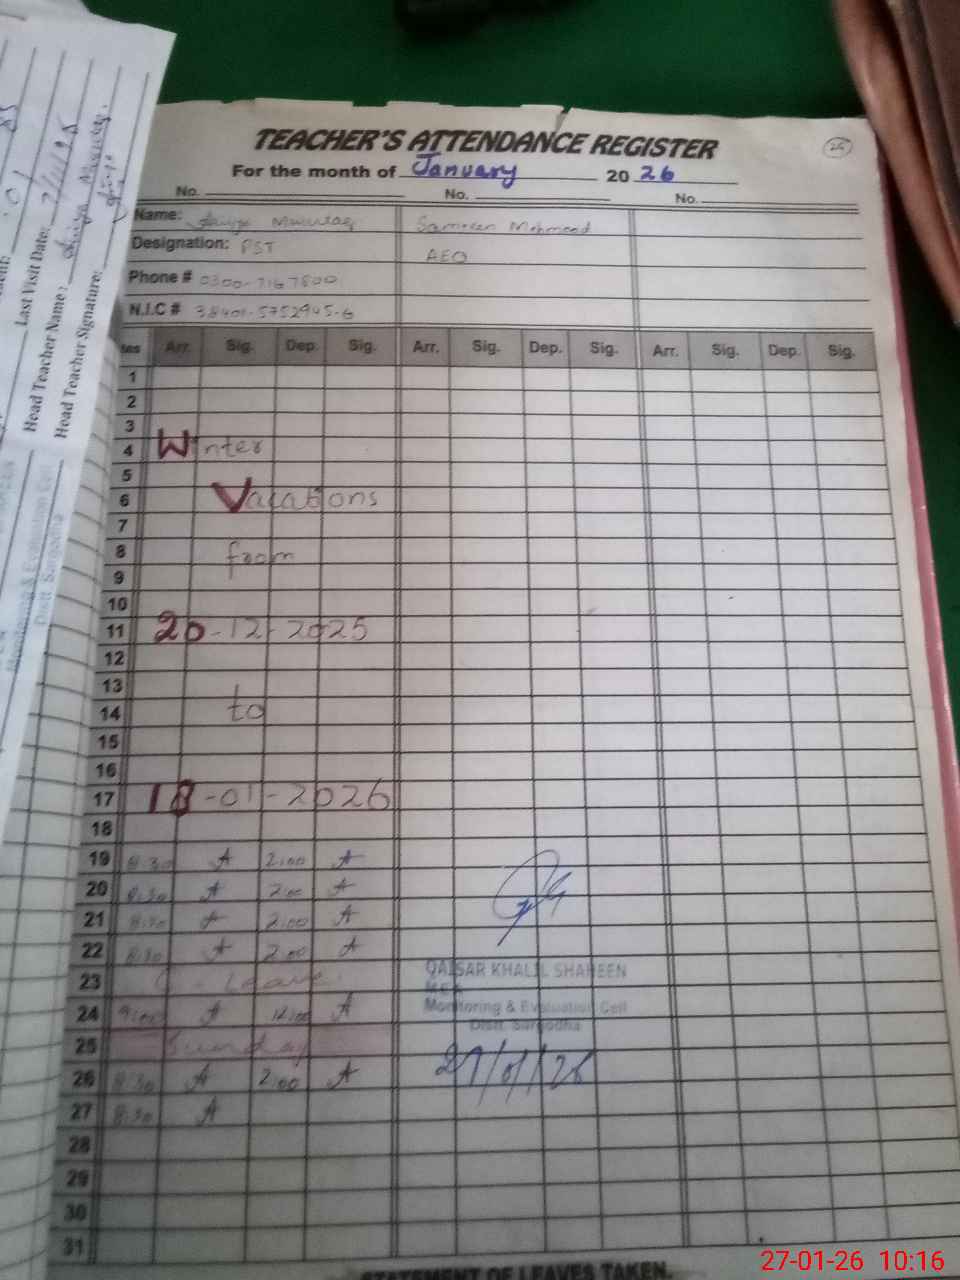 TEACHER'S ATTENDANCE REGISTER
25
For the month of January 20 26
No. No. No.
Name: Sameen Mehmood
Designation: PST AEO
Phone # 0300-7167800
N.I.C # 38401-5752945-6
Arr. Sig. Dep. Sig. Arr. Sig. Dep. Sig. Arr. Sig. Dep. Sig.
1
2
3
4 Winter
5
6 Vacations
7
8 from
9
10
11 20-12-2025
12
13
14 to
15
16
17 18-01-2026
18
19 8:30 A 2:00 A
20 8:30 A 2:00 A
21 8:30 A 2:00 A
22 8:30 A 2:00 A
23 C-Leave
24 9:00 A 12:00 A
25 Sunday
26 8:30 A 2:00 A
27 8:30 A
28
29
30
31
QAISAR KHALIL SHAHEEN
MEA
Monitoring & Evaluation Cell
Distt. Sargodha
27/01/26
STATEMENT OF LEAVES TAKEN
Last Visit Date:
Head Teacher Name:
Head Teacher Signature:
Monitoring & Evaluation Cell
Distt. Sargodha
27-01-26 10:16